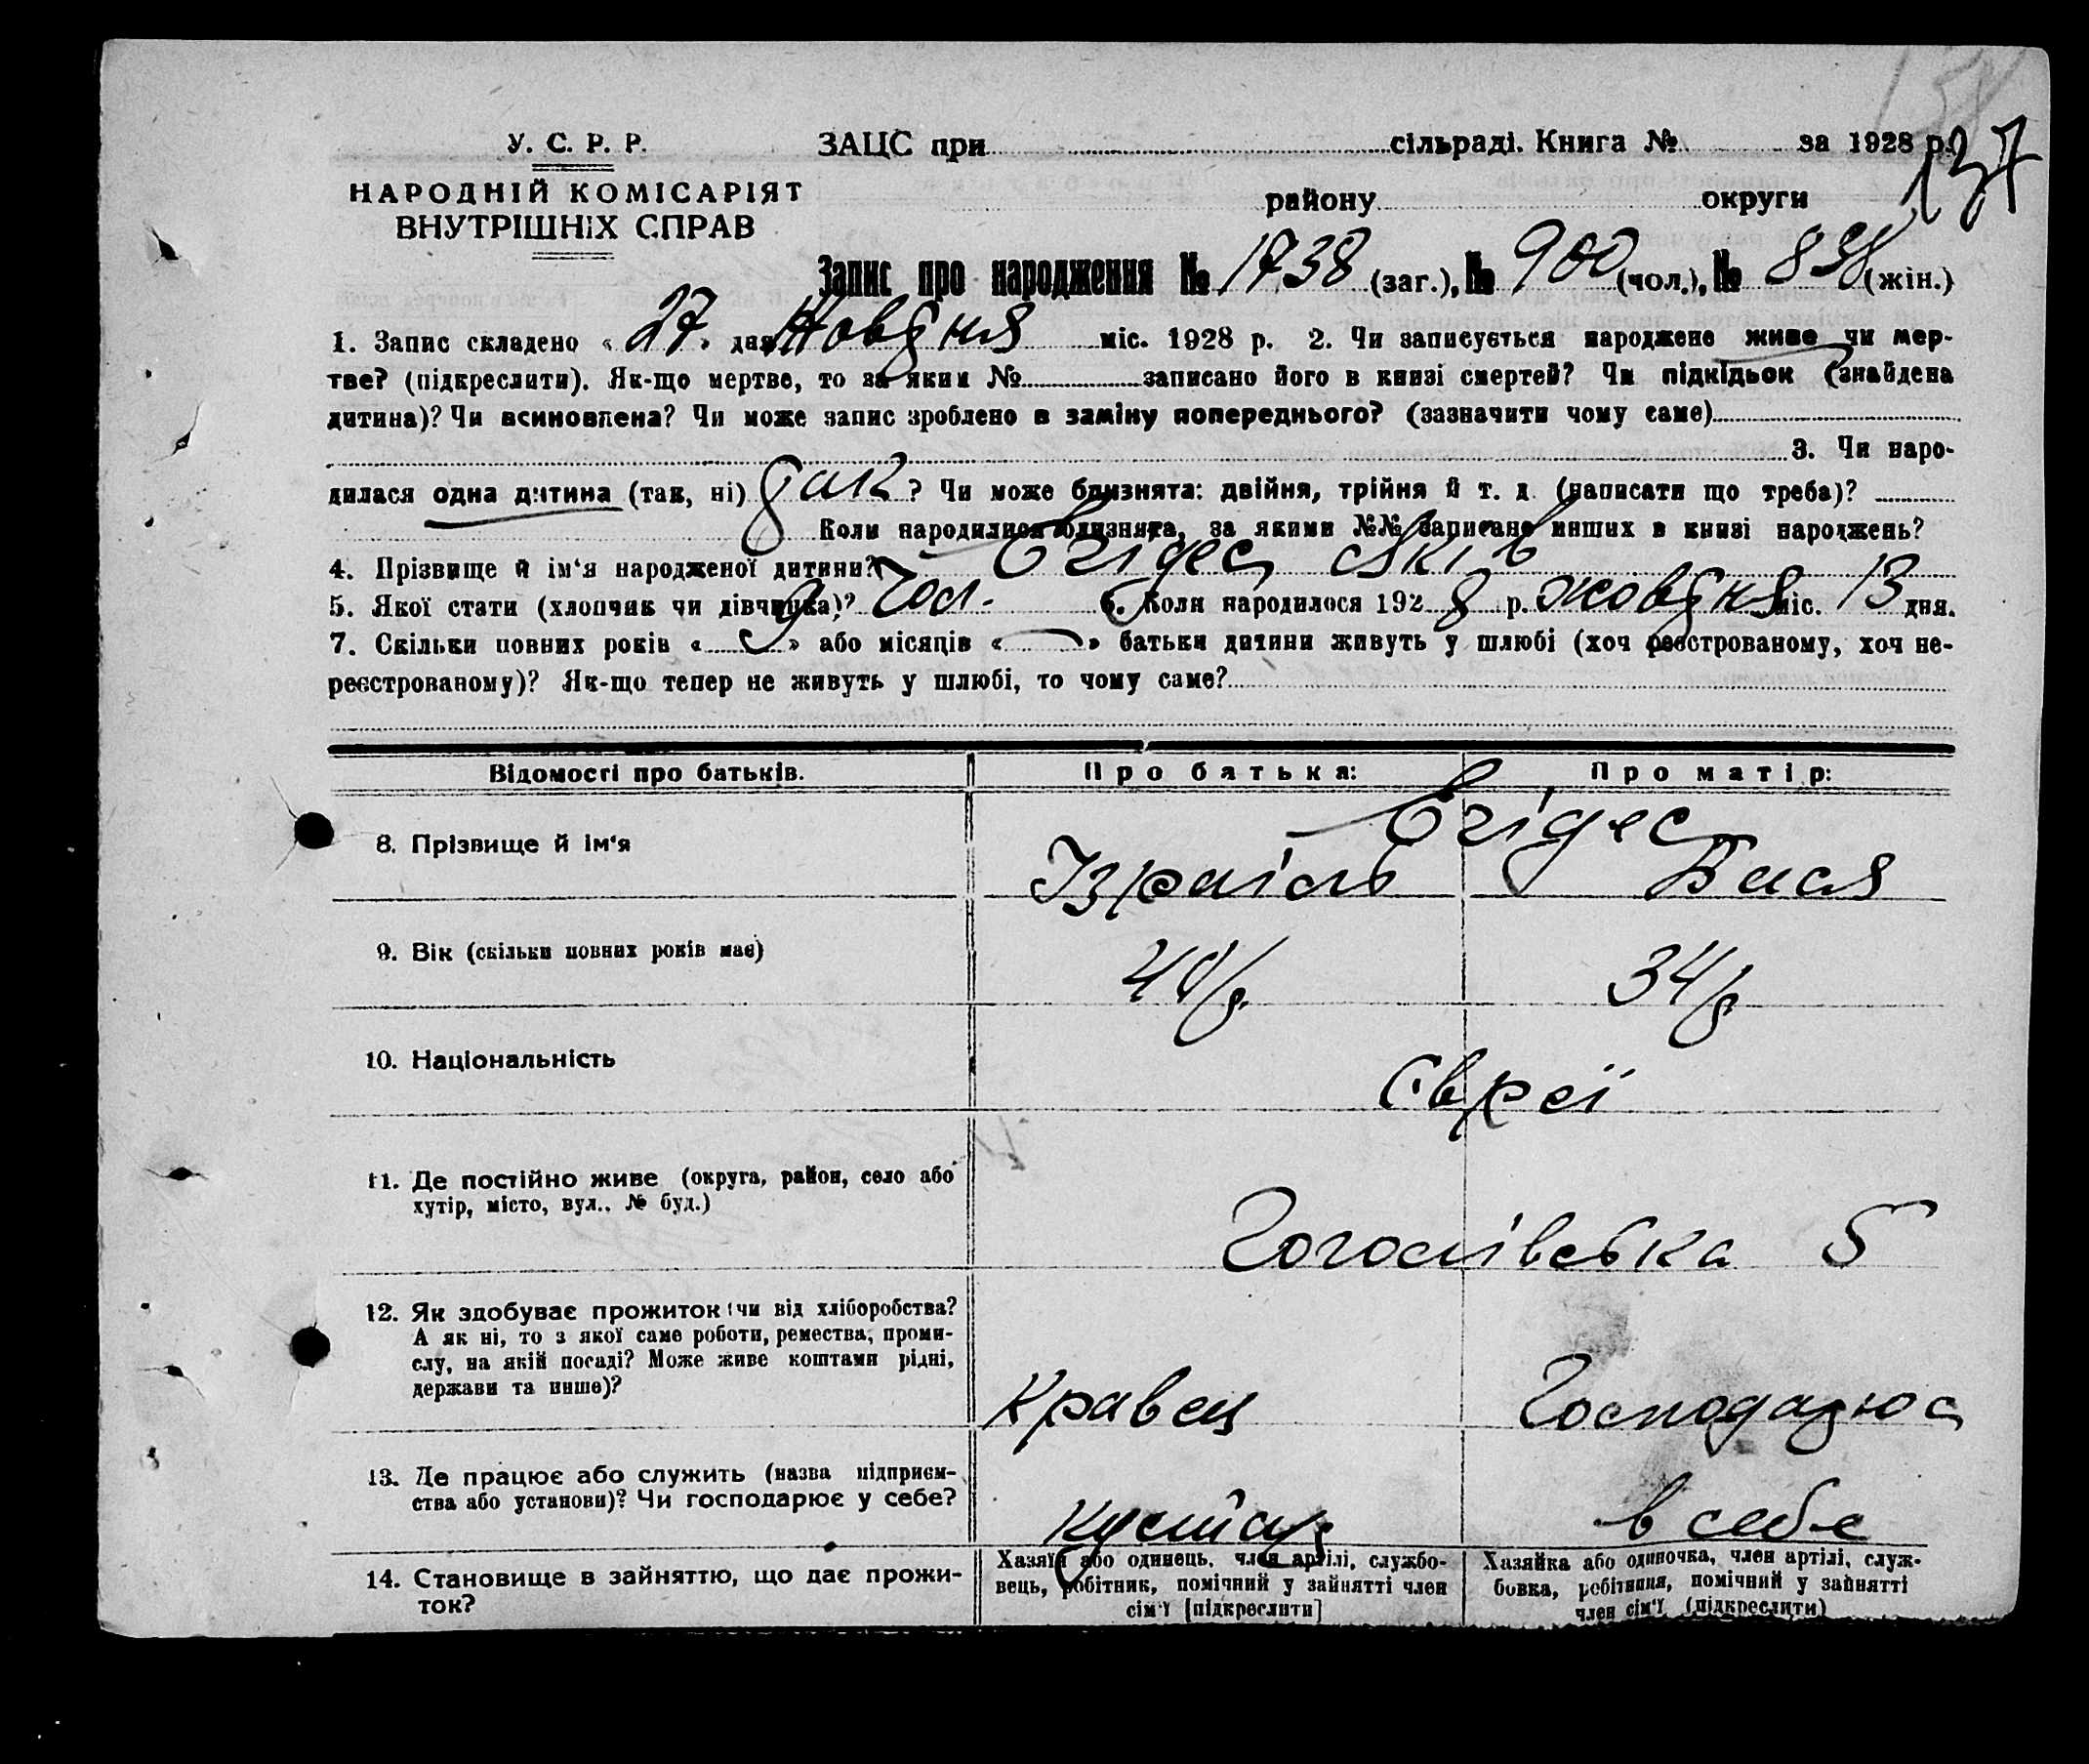 138
137
У. С. Р. Р.
НАРОДНІЙ КОМІСАРІЯТ
ВНУТРІШНІХ СПРАВ
ЗАЦС при сільраді. Книга № за 1928 р.
району округи
Запис про народження № 1738 (заг.), № 900 (чол.), № 838 (жін.)
1. Запис складено « 27 » дня Жовтня міс. 1928 р. 2. Чи записується народжене живе чи мер-
тве? (підкреслити). Як-що мертве, то за яким № записано його в книзі смертей? Чи підкідьок (знайдена
дитина)? Чи всиновлена? Чи може запис зроблено в заміну попереднього? (зазначити чому саме)
3. Чи наро-
дилася одна дитина (так, ні) так ? Чи може близнята: двійня, трійня й т. д. (написати що треба)?
Коли народилися близнята, за якими №№ записано инших в книзі народжень?
4. Прізвище й ім‘я народженої дитини?
5. Якої статі (хлопчик чи дівчинка)? Чол. 6. Коли народилося 1928 р. жовтня міс. 13 дня.
7. Скільки повних років « » або місяців « » батьки дитини живуть у шлюбі (хоч реєстрованому, хоч не-
реєстрованому)? Як-що тепер не живуть у шлюбі, то чому саме?
Відомості про батьків. Про батька: Про матір:
8. Прізвище й ім‘я Ізраіль Бася
9. Вік (скільки повних років має) 40/р. 34/р.
10. Національність Євреї
11. Де постійно живе (округа, район, село або
хутір, місто, вул., № буд.)
Гоголівська 5
12. Як здобуває прожиток (чи від хліборобства?
А як ні, то з якої саме роботи, ремества, проми-
слу, на якій посаді? Може живе коштами рідні,
держави та инше)?
Кравець Господарює
13. Де працює або служить (назва підприєм-
ства або установи)? Чи господарює у себе?
кустар в себе
14. Становище в зайняттю, що дає прожи-
ток?
Хазяїн або одинець, член артілі, службо-
вець, робітник, помічний у зайнятті член
сім‘ї [підкреслити]
Хазяйка або одиночка, член артілі, служ-
бовка, робітниця, помічний у зайнятті
член сім‘ї (підкреслити)